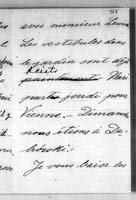 avec monsieur
Les vestibules dans
le jardin sont déjà
petits
parts jeudi pour
Vienne. Dimanc
nous étions à Da
broki.
Je vous baise les